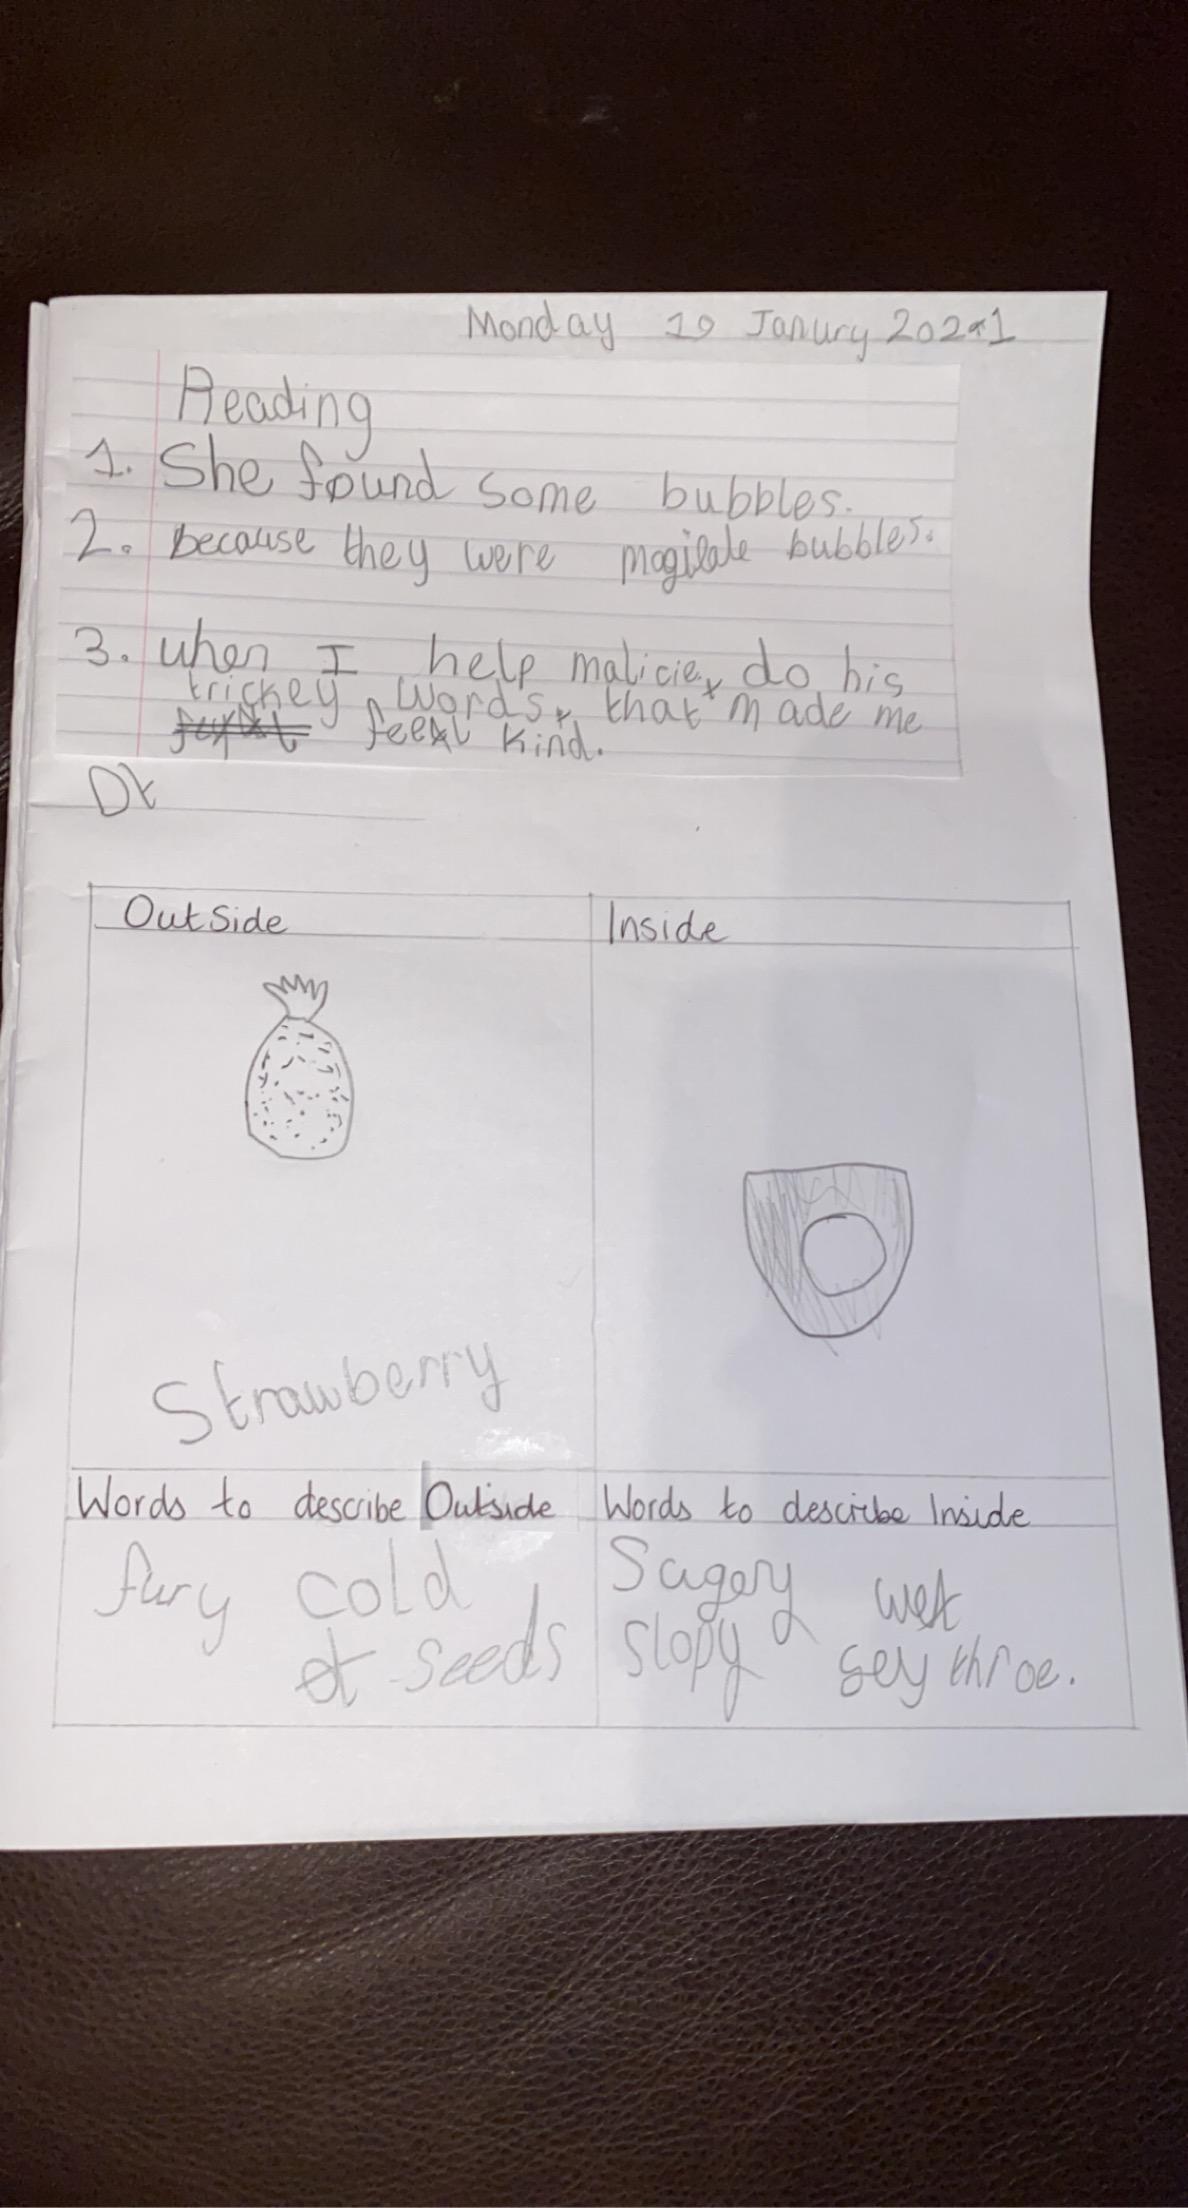 Monday 19 Janury 2021
Reading
1. She found some bubbles.
2. because they were bubbles.
3. when I help malicie, do his
trickey words, that made me
feel kind.
Dt
Outside
Inside
Strawberry
Words to describe Outside
Words to describe Inside
fury cold
Sugery wet
seeds
slopy sey throe.